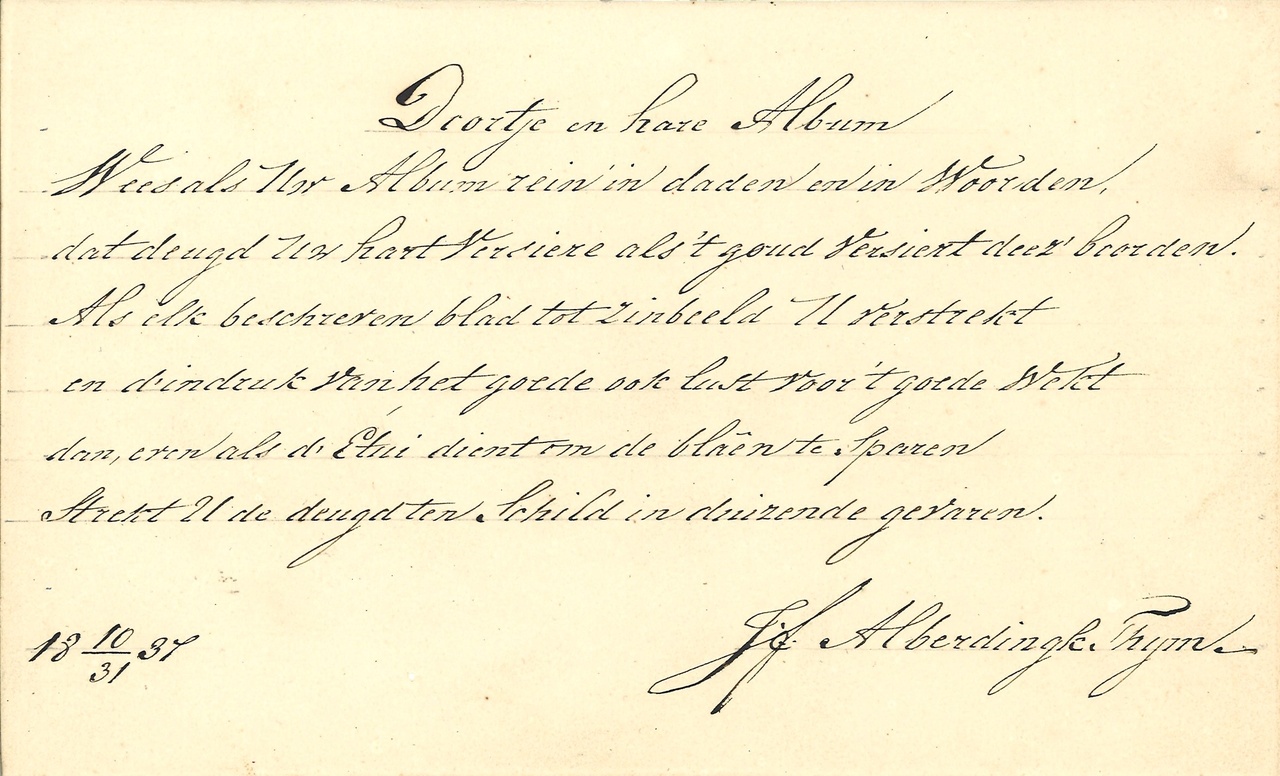 Doortje en hare Album
Wees als Uw Album rein in daden en in Woorden,
dat deugd Uw hart Versiere als 't goud Versiert deez' boorden.
Als elk beschreven blad tot zinbeeld U verstrekt
en d'indruk van het goede ook lust voor 't goede Wekt
dan, even als d' Étui dient om de blaên te Sparen
Strekt U de deugd ten Schild in duizende gevaren.
18 10/31 37
J.f. Alberdingk Thym